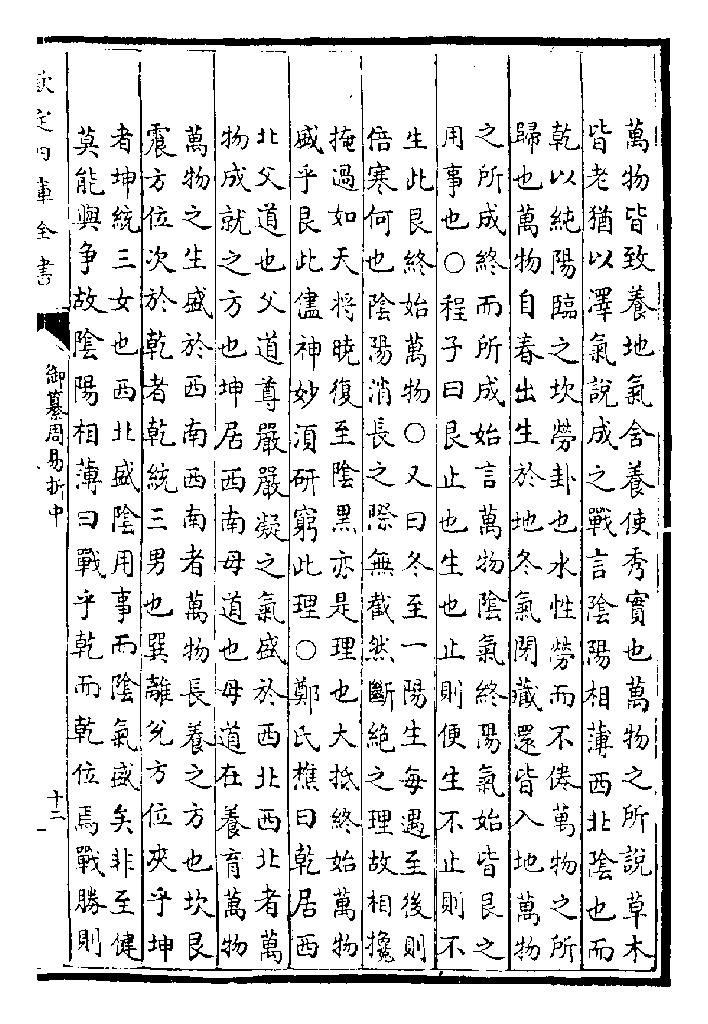 萬物皆致養地氣含養使秀實也萬物之所說草木
皆老猶以澤氣說成之戰言陰陽相薄西北陰也而
乾以純陽臨之坎勞卦也水性勞而不倦萬物之所
歸也萬物自春出生於地冬氣閉藏還皆入地萬物
之所成終而所成始言萬物陰氣終陽氣始皆艮之
用事也○程子曰艮止也生也止則便生不止則不
生此艮終始萬物○又曰冬至一陽生每遇至後則
倍寒何也陰陽消長之際無截然斷絶之理故相攙
掩過如天將曉復至陰黑亦是理也大抵終始萬物
盛乎艮此儘神妙須研窮此理○鄭氏樵曰乾居西
北父道也父道尊嚴嚴凝之氣盛於西北西北者萬
物成就之方也坤居西南母道也母道在養育萬物
萬物之生盛於西南西南者萬物長養之方也坎艮
震方位次於乾者乾統三男也巽離兌方位夾乎坤
者坤統三女也西北盛陰用事而陰氣盛矣非至健
莫能與争故陰陽相薄曰戰乎乾而乾位焉戰勝則
欽定四庫全書
御纂周易折中
十二